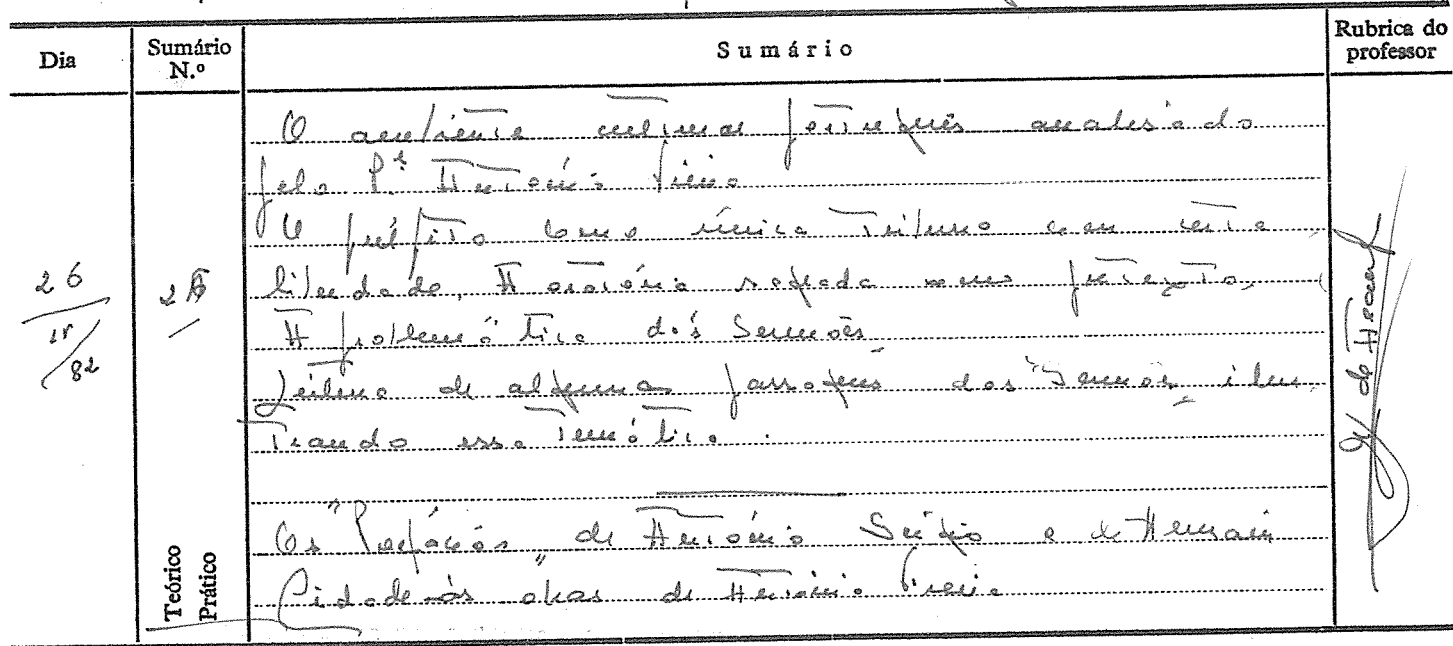 Dia
Sumário N.º
Sumário
Rubrica do professor
O ambiente cultural português analisado
pelo P.e António Vieira
O púlpito como única tribuna com certa
liberdade. A oratória sagrada como pretexto.
A problemática dos Sermões
Leitura de algumas passagens dos "Sermões" ilus
trando essa temática.
26
82
Os "Prefácios" de António Sérgio e de Hernâni
Cidade às obras de António Vieira
Teórico
Prático